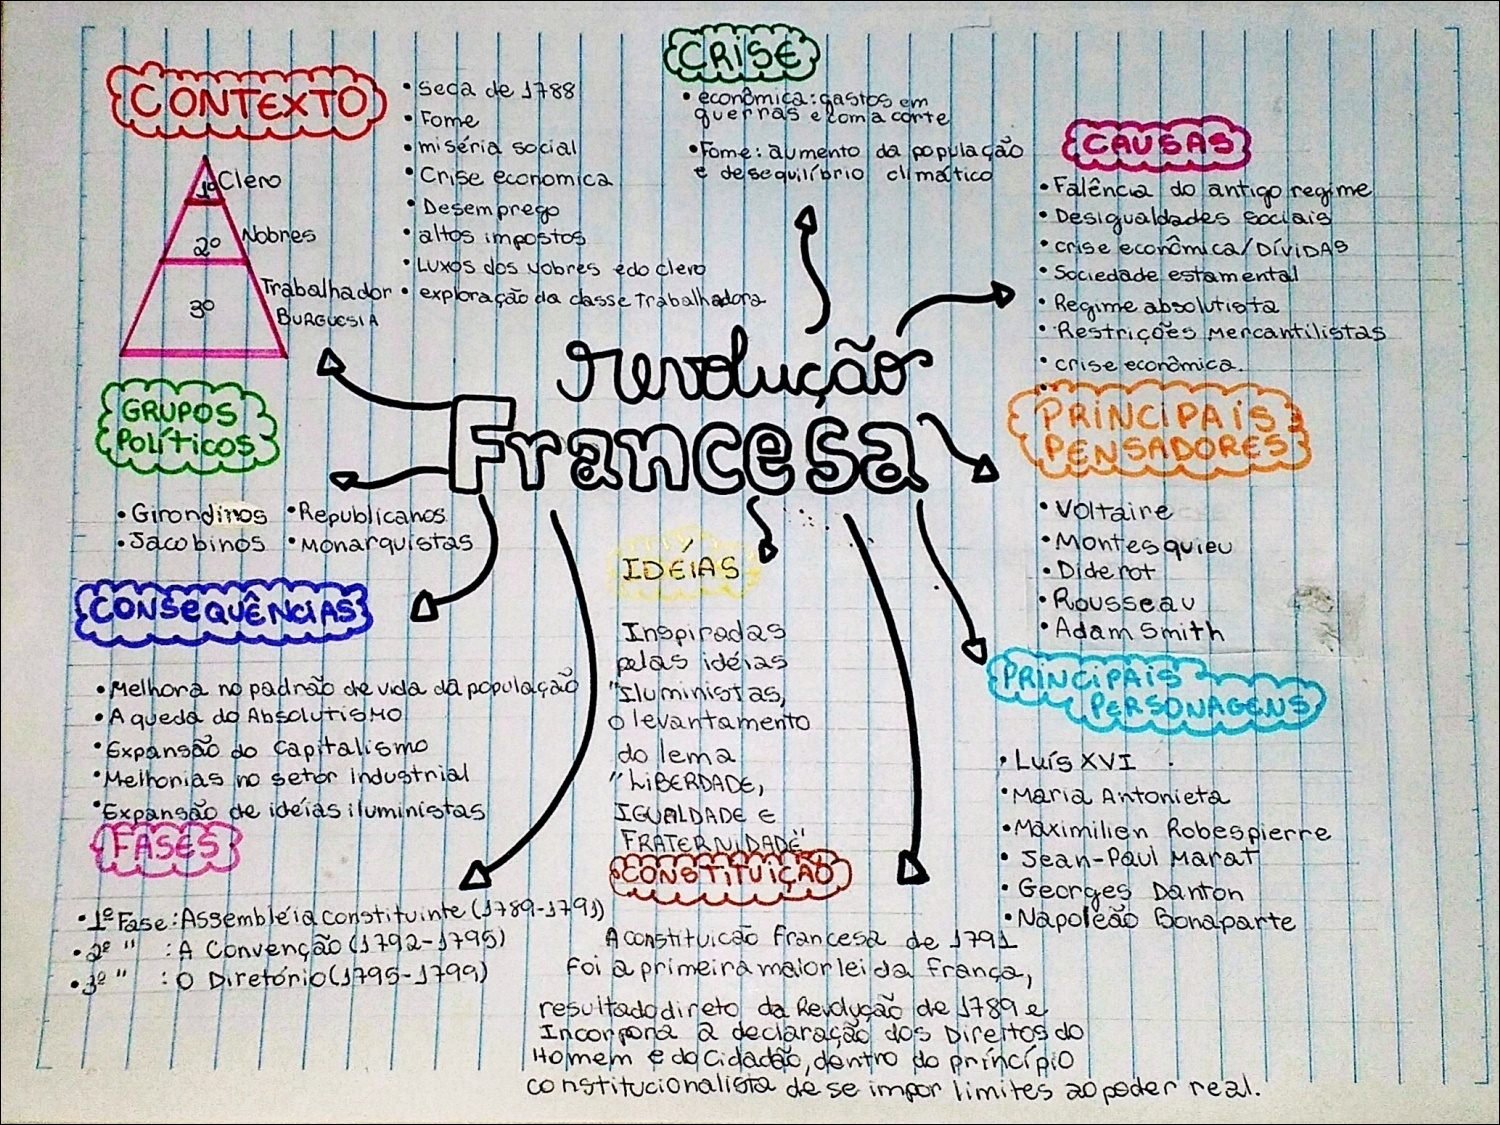 CONTEXTO
1º Clero
2º Nobres
3º Trabalhador
BURGUESIA
• seca de 1788
• Fome
• miséria social
• Crise economica
• Desemprego
• altos impostos
• Luxos dos Nobres e do clero
• exploração da classe trabalhadora
CRISE
• econômica: gastos em
guerras e com a corte
• Fome: aumento da população
e desequilíbrio climático
CAUSAS
• Falência do antigo regime
• Desigualdades sociais
• crise econômica/DÍVIDAS
• Sociedade estamental
• Regime absolutista
• Restrições Mercantilistas
• crise econômica.
revolução
Francesa
GRUPOS
POLÍTICOS
• Girondinos • Republicanos
• Jacobinos • Monarquistas
PRINCIPAIS
PENSADORES
• Voltaire
• Montesquieu
• Diderot
• Rousseau
• Adam Smith
CONSEQUÊNCIAS
• Melhora no padrão de vida da população
• A queda do Absolutismo
• Expansão do capitalismo
• Melhorias no setor industrial
• Expansão de idéias iluministas
IDÉIAS
Inspiradas
pelas idéias
"iluministas,
o levantamento
do lema
"LIBERDADE,
IGUALDADE E
FRATERNIDADE"
PRINCIPAIS
PERSONAGENS
• Luís XVI
• Maria Antonieta
• Maximilien Robespierre
• Jean-Paul Marat
• Georges Danton
• Napoleão Bonaparte
FASES
• 1ª Fase: Assembléia constituinte (1789-1791)
• 2ª " : A Convenção (1792-1795)
• 3ª " : O Diretório (1795-1799)
CONSTITUIÇÃO
A constituicão Francesa de 1791
Foi a primeira maior lei da França,
resultado direto da Revolução de 1789 e
Incorpora a declaração dos Direitos do
Homem e do Cidadão, dentro do princípio
constitucionalista de se impor limites ao poder real.